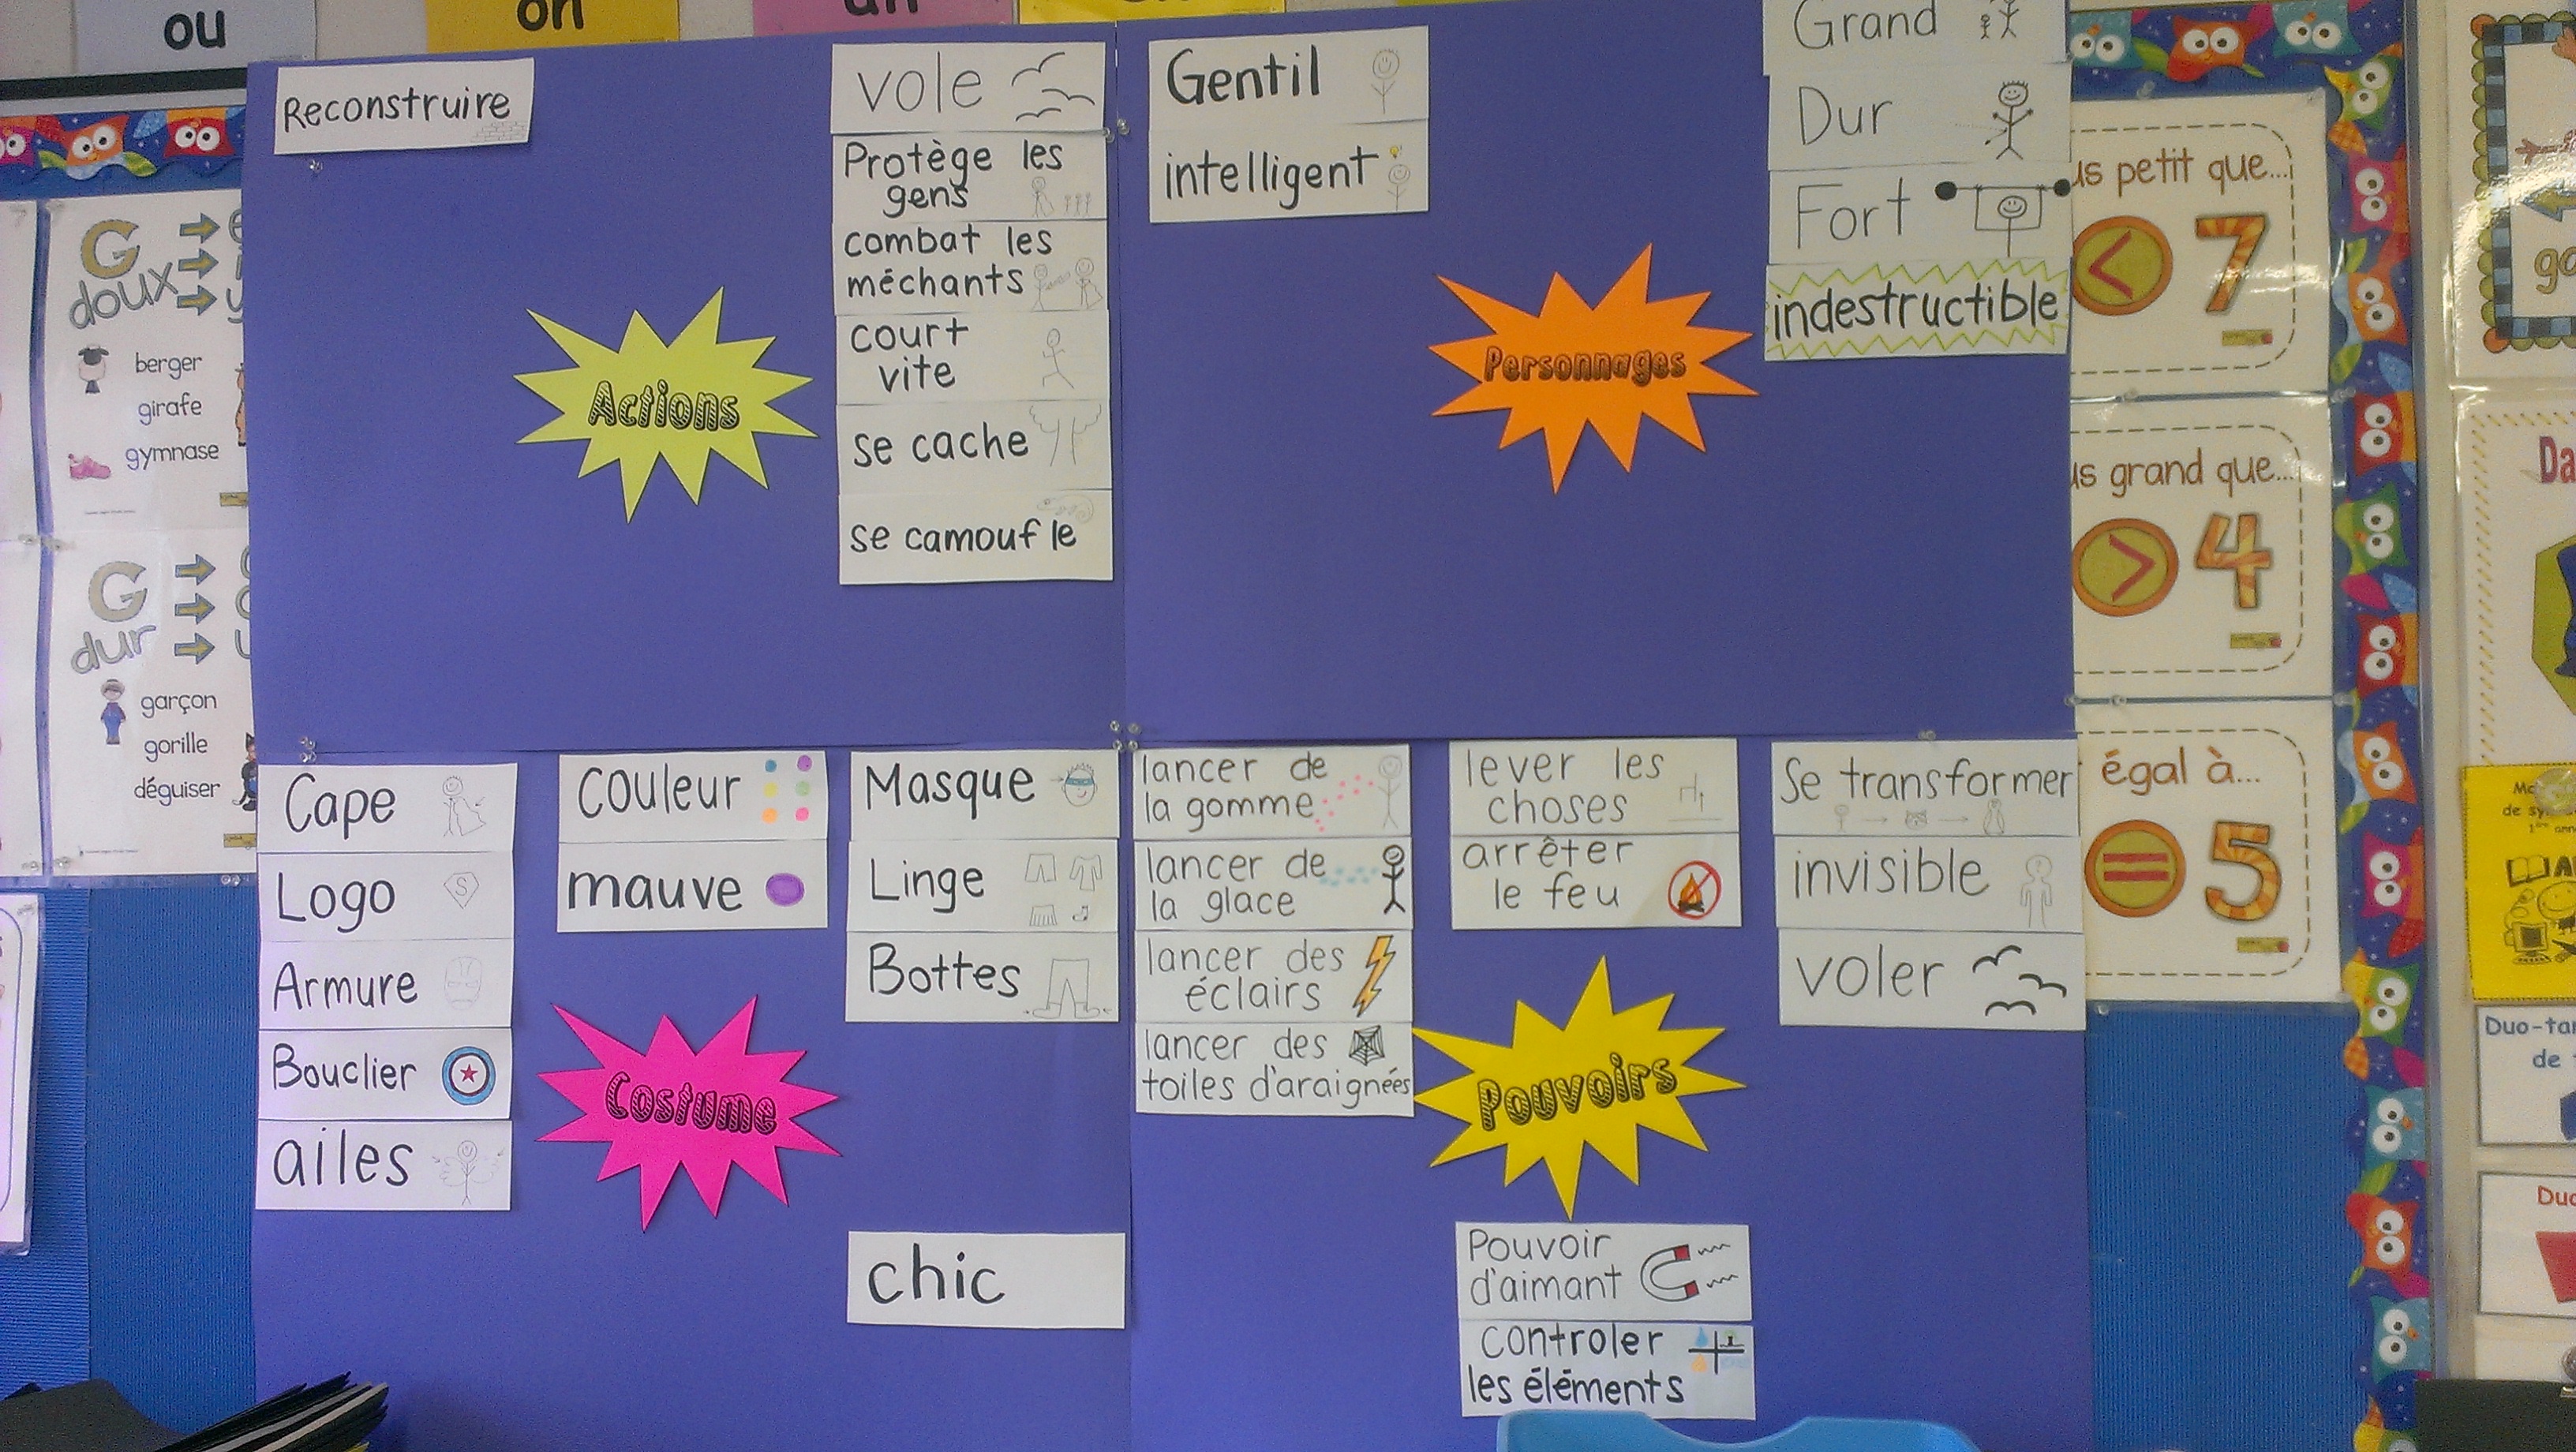 ou
on
an
Reconstruire
vole
Protège les
gens
combat les
méchants
court
vite
se cache
se camoufle
Actions
Gentil
intelligent
Grand
Dur
Fort
indestructible
Personnages
Cape
Logo
S
Armure
Bouclier
ailes
couleur
mauve
Masque
Linge
Bottes
Costume
chic
lancer de
la gomme
lancer de
la glace
lancer des
éclairs
lancer des
toiles d'araignées
lever les
choses
arrêter
le feu
Se transformer
invisible
voler
Pouvoirs
Pouvoir
d'aimant
controler
les éléments
G
doux
berger
girafe
gymnase
G
dur
garçon
gorille
déguiser
petit que...
< 7
grand que...
> 4
égal à...
= 5
Duo-tan
de
Duo